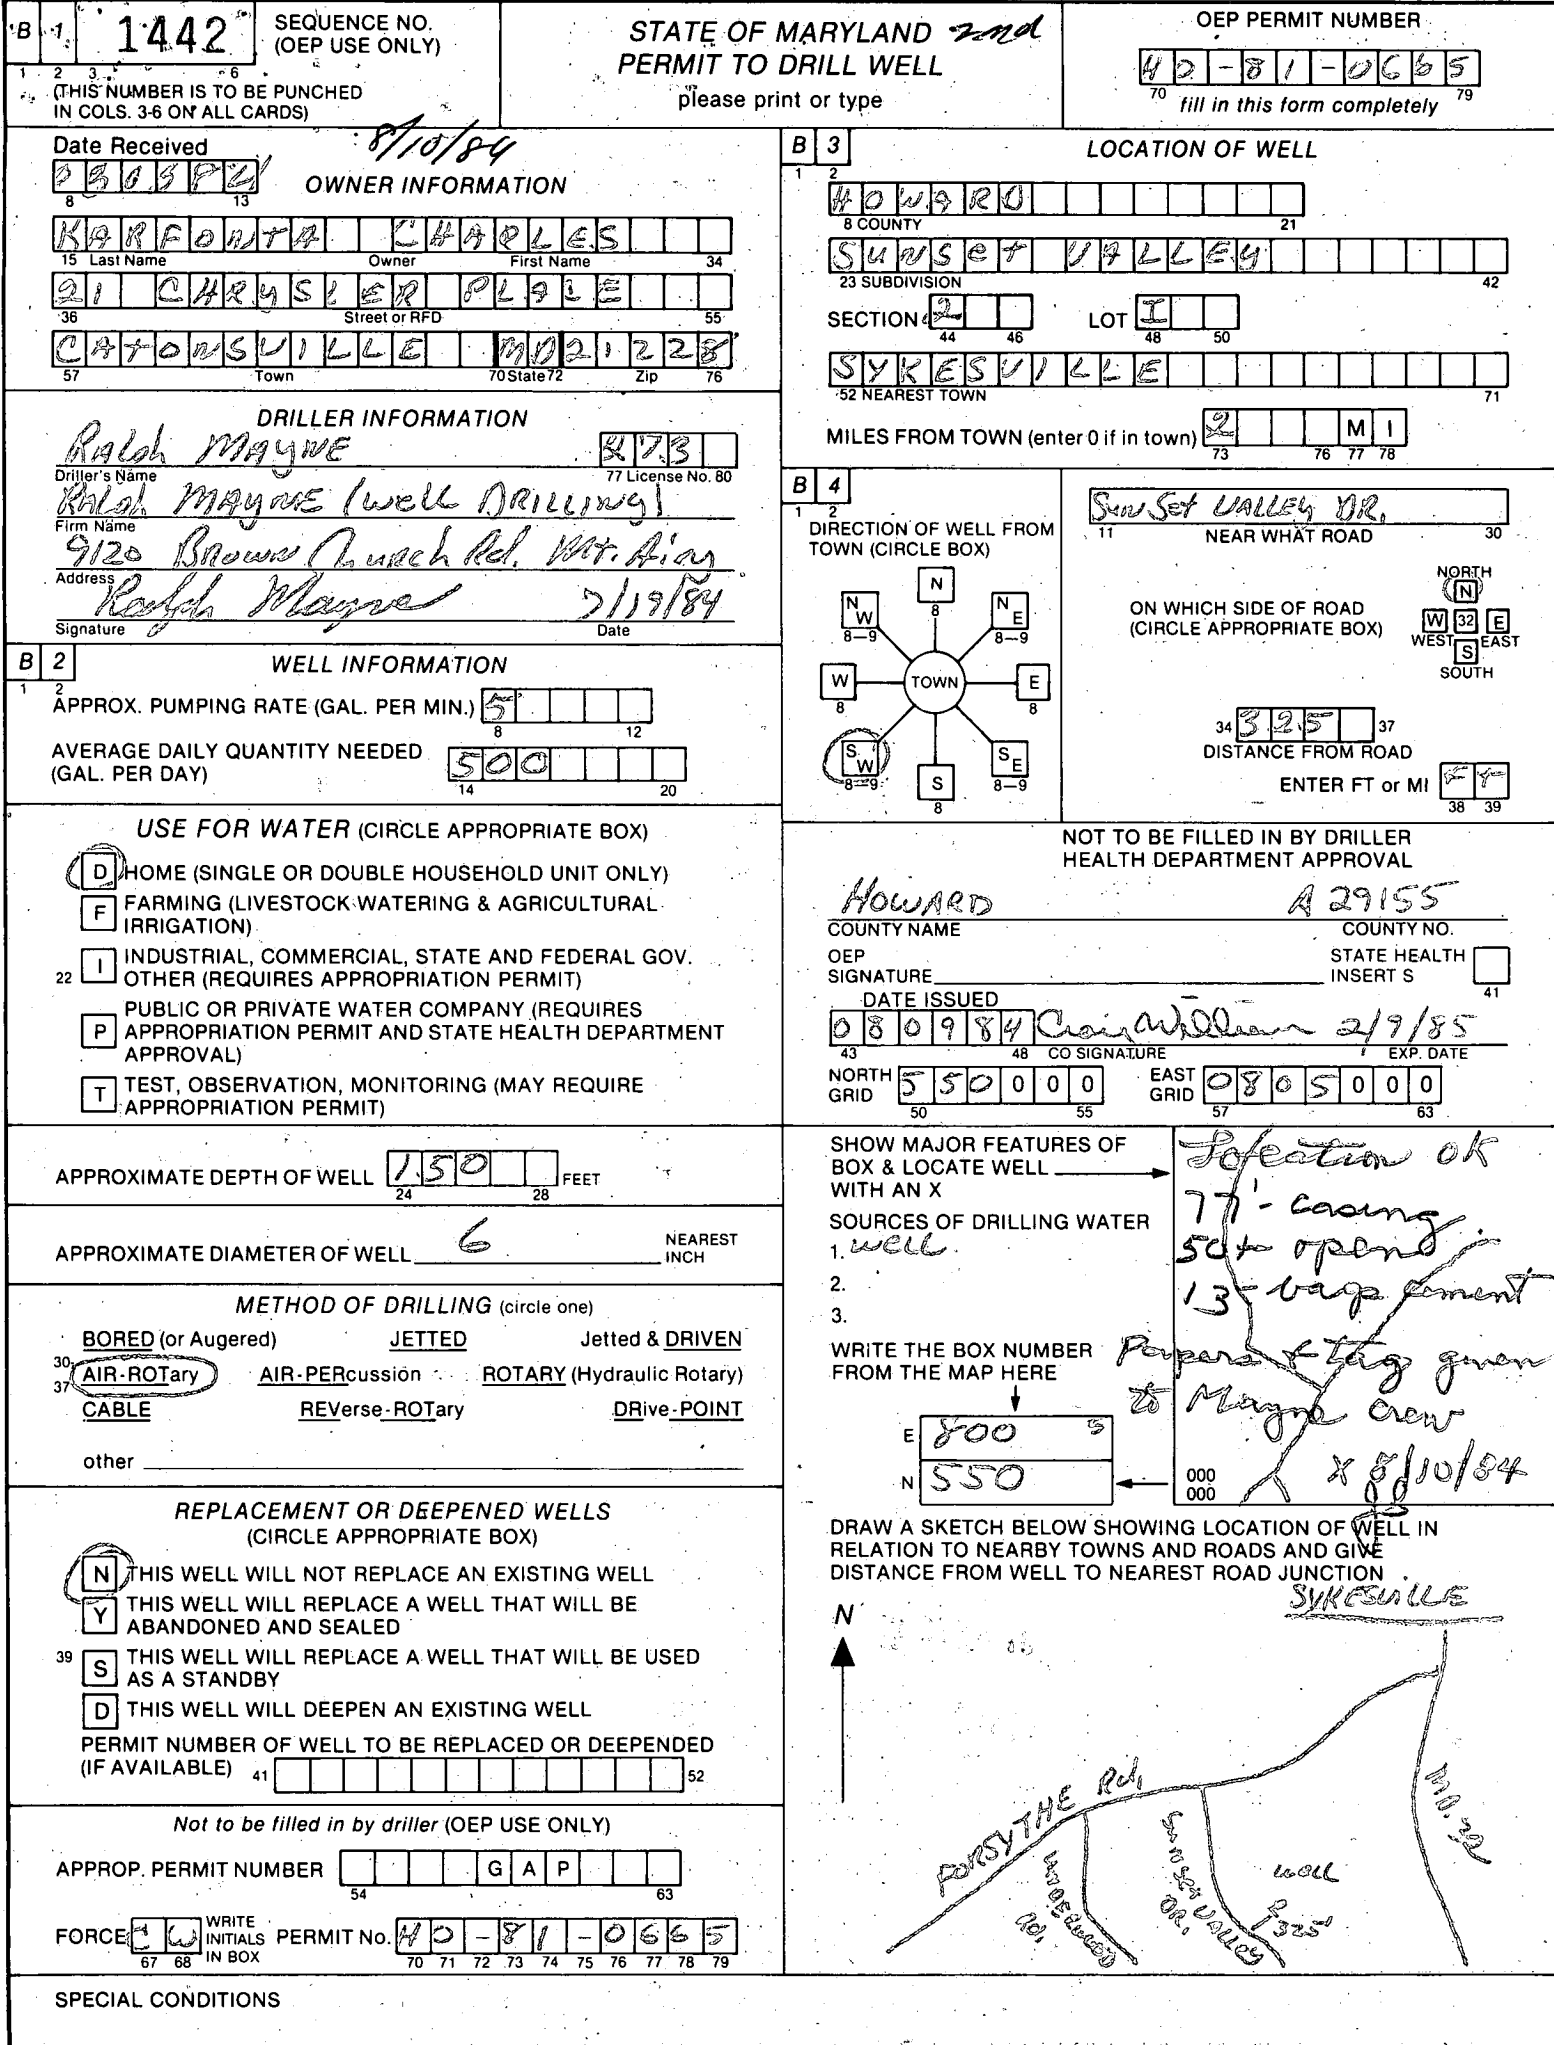 B 1 1442 SEQUENCE NO. (OEP USE ONLY)
1 2 3 6
(THIS NUMBER IS TO BE PUNCHED
IN COLS. 3-6 ON ALL CARDS)
STATE OF MARYLAND 2nd
PERMIT TO DRILL WELL
please print or type
OEP PERMIT NUMBER
HO-81-0665
70 79
fill in this form completely
Date Received 8/10/84
8 13
OWNER INFORMATION
KARFONTA CHARLES
15 Last Name Owner First Name 34
21 CHRYSLER PLACE
36 Street or RFD 55
CATONSVILLE MD 21228
57 Town 70 State 72 Zip 76
DRILLER INFORMATION
Ralph MAYNE 273
Driller's Name 77 License No. 80
Ralph MAYNE (Well DRILLING)
Firm Name
9120 Brown Church Rd. Mt. Airy
Address
Ralph Mayne 7/19/84
Signature Date
B 2 WELL INFORMATION
1 2
APPROX. PUMPING RATE (GAL. PER MIN.) 5
8 12
AVERAGE DAILY QUANTITY NEEDED
(GAL. PER DAY) 500
14 20
USE FOR WATER (CIRCLE APPROPRIATE BOX)
D HOME (SINGLE OR DOUBLE HOUSEHOLD UNIT ONLY)
F FARMING (LIVESTOCK WATERING & AGRICULTURAL
IRRIGATION)
22 I INDUSTRIAL, COMMERCIAL, STATE AND FEDERAL GOV.
OTHER (REQUIRES APPROPRIATION PERMIT)
P PUBLIC OR PRIVATE WATER COMPANY (REQUIRES
APPROPRIATION PERMIT AND STATE HEALTH DEPARTMENT
APPROVAL)
T TEST, OBSERVATION, MONITORING (MAY REQUIRE
APPROPRIATION PERMIT)
APPROXIMATE DEPTH OF WELL 150 FEET
24 28
APPROXIMATE DIAMETER OF WELL 6 NEAREST
INCH
METHOD OF DRILLING (circle one)
BORED (or Augered) JETTED Jetted & DRIVEN
30 37 AIR-ROTary AIR-PERcussion ROTARY (Hydraulic Rotary)
CABLE REVerse-ROTary DRive-POINT
other
REPLACEMENT OR DEEPENED WELLS
(CIRCLE APPROPRIATE BOX)
N THIS WELL WILL NOT REPLACE AN EXISTING WELL
Y THIS WELL WILL REPLACE A WELL THAT WILL BE
ABANDONED AND SEALED
39 S THIS WELL WILL REPLACE A WELL THAT WILL BE USED
AS A STANDBY
D THIS WELL WILL DEEPEN AN EXISTING WELL
PERMIT NUMBER OF WELL TO BE REPLACED OR DEEPENDED
(IF AVAILABLE) 41 52
Not to be filled in by driller (OEP USE ONLY)
APPROP. PERMIT NUMBER GAP
54 63
FORCE CW WRITE INITIALS IN BOX PERMIT No. HO-81-0665
67 68 70 71 72 73 74 75 76 77 78 79
SPECIAL CONDITIONS
B 3 LOCATION OF WELL
1 2
HOWARD
8 COUNTY 21
SUNSET VALLEY
23 SUBDIVISION 42
SECTION 2 LOT I
44 46 48 50
SYKESVILLE
52 NEAREST TOWN 71
MILES FROM TOWN (enter 0 if in town) 2 MI
73 76 77 78
B 4
1 2
DIRECTION OF WELL FROM
TOWN (CIRCLE BOX)
N 8
NW 8-9 NE 8-9
W 8 TOWN E 8
SW 8-9 SE 8-9
S 8
SunSet VALLEY DR.
11 NEAR WHAT ROAD 30
ON WHICH SIDE OF ROAD
(CIRCLE APPROPRIATE BOX)
NORTH
N
W 32 E
WEST EAST
S
SOUTH
34 325 37
DISTANCE FROM ROAD
ENTER FT or MI FT
38 39
NOT TO BE FILLED IN BY DRILLER
HEALTH DEPARTMENT APPROVAL
HOWARD A 29155
COUNTY NAME COUNTY NO.
OEP SIGNATURE STATE HEALTH INSERT S
41
DATE ISSUED
080984 Craig William 2/9/85
43 48 CO SIGNATURE EXP. DATE
NORTH GRID 550000 EAST GRID 0805000
50 55 57 63
SHOW MAJOR FEATURES OF
BOX & LOCATE WELL
WITH AN X
SOURCES OF DRILLING WATER
1. well
2.
3.
WRITE THE BOX NUMBER
FROM THE MAP HERE
E 800 5
N 550
000
000
Location OK
77' - casing
50+ open
13 - bags cement
Papers & tag given
to Mayne crew
X 8/10/84
DRAW A SKETCH BELOW SHOWING LOCATION OF WELL IN
RELATION TO NEARBY TOWNS AND ROADS AND GIVE
DISTANCE FROM WELL TO NEAREST ROAD JUNCTION
SYKESVILLE
N
FORSYTHE Rd.
UNDERWOOD RD.
SUNSET VALLEY DR.
well
325'
MD. 32